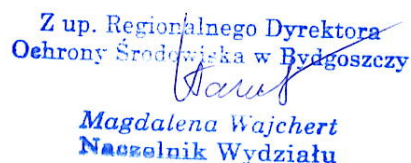 Z up. Regionalnego Dyrektora
Ochrony Środowiska w Bydgoszczy
Magdalena Wajchert
Naczelnik Wydziału